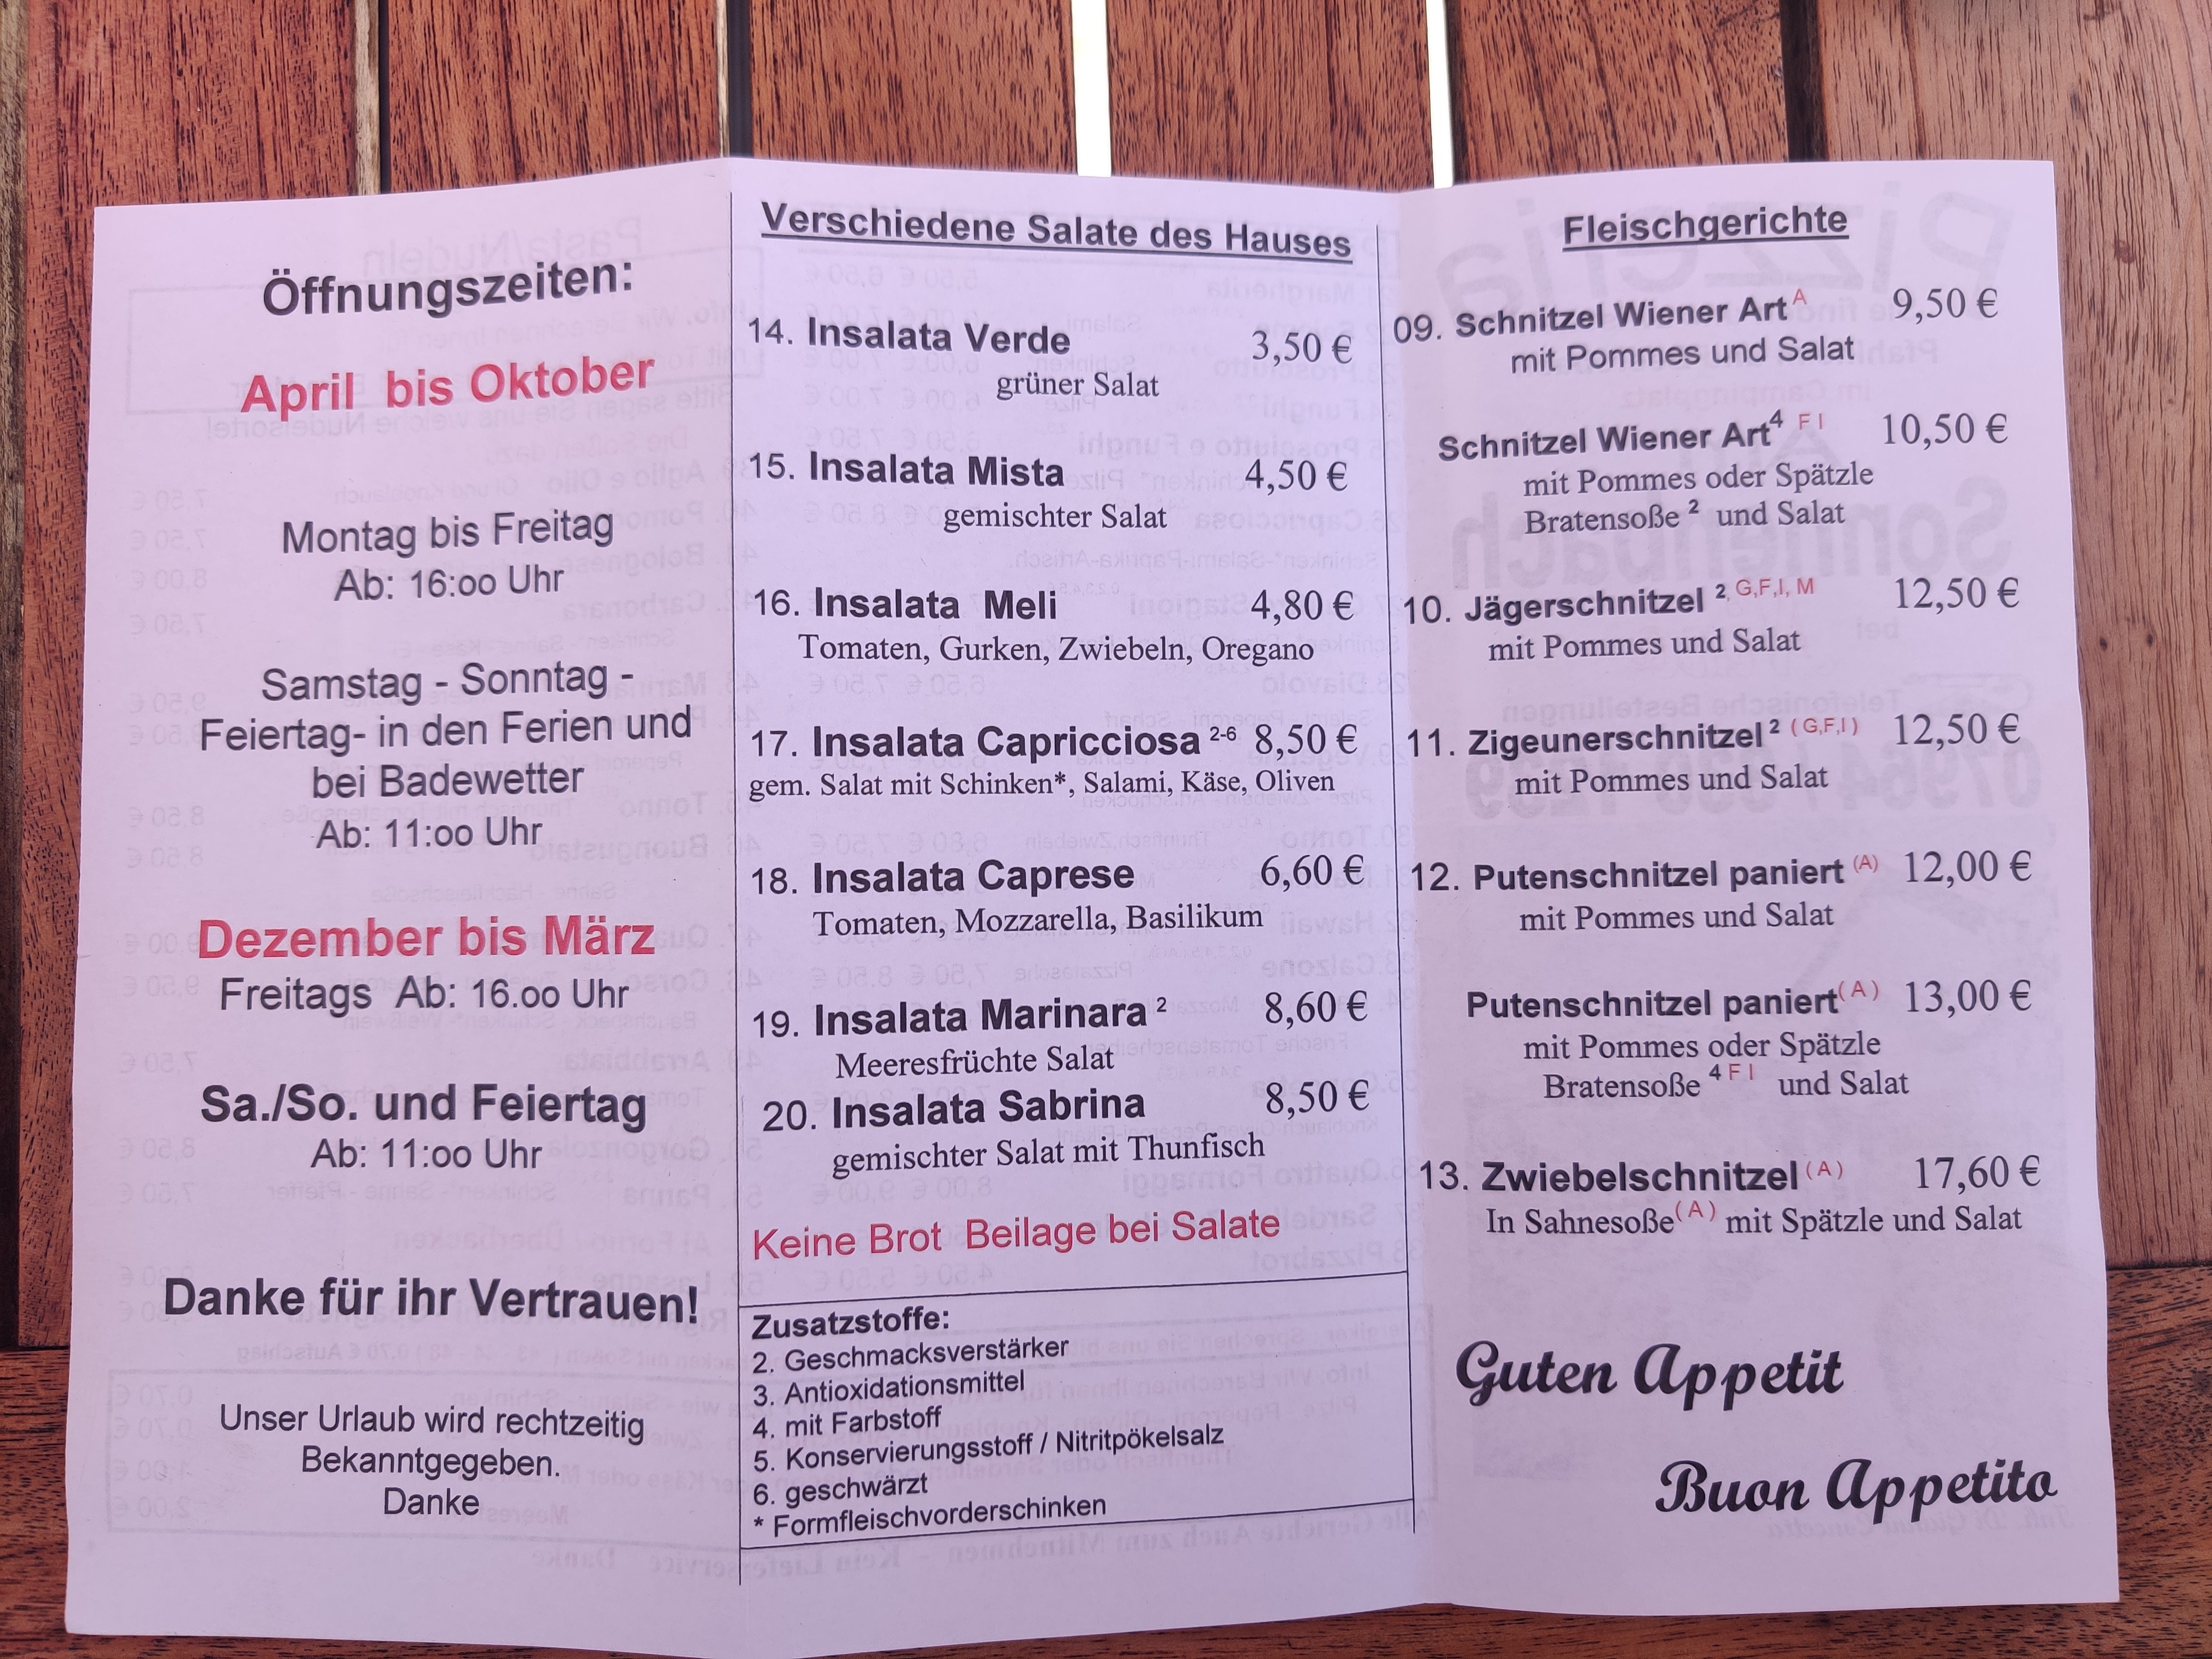 Öffnungszeiten:
April bis Oktober
Montag bis Freitag
Ab: 16:oo Uhr
Samstag - Sonntag -
Feiertag- in den Ferien und
bei Badewetter
Ab: 11:oo Uhr
Dezember bis März
Freitags Ab: 16.oo Uhr
Sa./So. und Feiertag
Ab: 11:oo Uhr
Danke für ihr Vertrauen!
Unser Urlaub wird rechtzeitig
Bekanntgegeben.
Danke
Verschiedene Salate des Hauses
14. Insalata Verde 3,50 €
grüner Salat
15. Insalata Mista 4,50 €
gemischter Salat
16. Insalata Meli 4,80 €
Tomaten, Gurken, Zwiebeln, Oregano
17. Insalata Capricciosa 2-6 8,50 €
gem. Salat mit Schinken*, Salami, Käse, Oliven
18. Insalata Caprese 6,60 €
Tomaten, Mozzarella, Basilikum
19. Insalata Marinara 2 8,60 €
Meeresfrüchte Salat
20. Insalata Sabrina 8,50 €
gemischter Salat mit Thunfisch
Keine Brot Beilage bei Salate
Zusatzstoffe:
2. Geschmacksverstärker
3. Antioxidationsmittel
4. mit Farbstoff
5. Konservierungsstoff / Nitritpökelsalz
6. geschwärzt
* Formfleischvorderschinken
Fleischgerichte
09. Schnitzel Wiener Art A 9,50 €
mit Pommes und Salat
Schnitzel Wiener Art 4 F I 10,50 €
mit Pommes oder Spätzle
Bratensoße 2 und Salat
10. Jägerschnitzel 2, G,F,I, M 12,50 €
mit Pommes und Salat
11. Zigeunerschnitzel 2 (G,F,I) 12,50 €
mit Pommes und Salat
12. Putenschnitzel paniert (A) 12,00 €
mit Pommes und Salat
Putenschnitzel paniert (A) 13,00 €
mit Pommes oder Spätzle
Bratensoße 4 F I und Salat
13. Zwiebelschnitzel (A) 17,60 €
In Sahnesoße (A) mit Spätzle und Salat
Guten Appetit
Buon Appetito